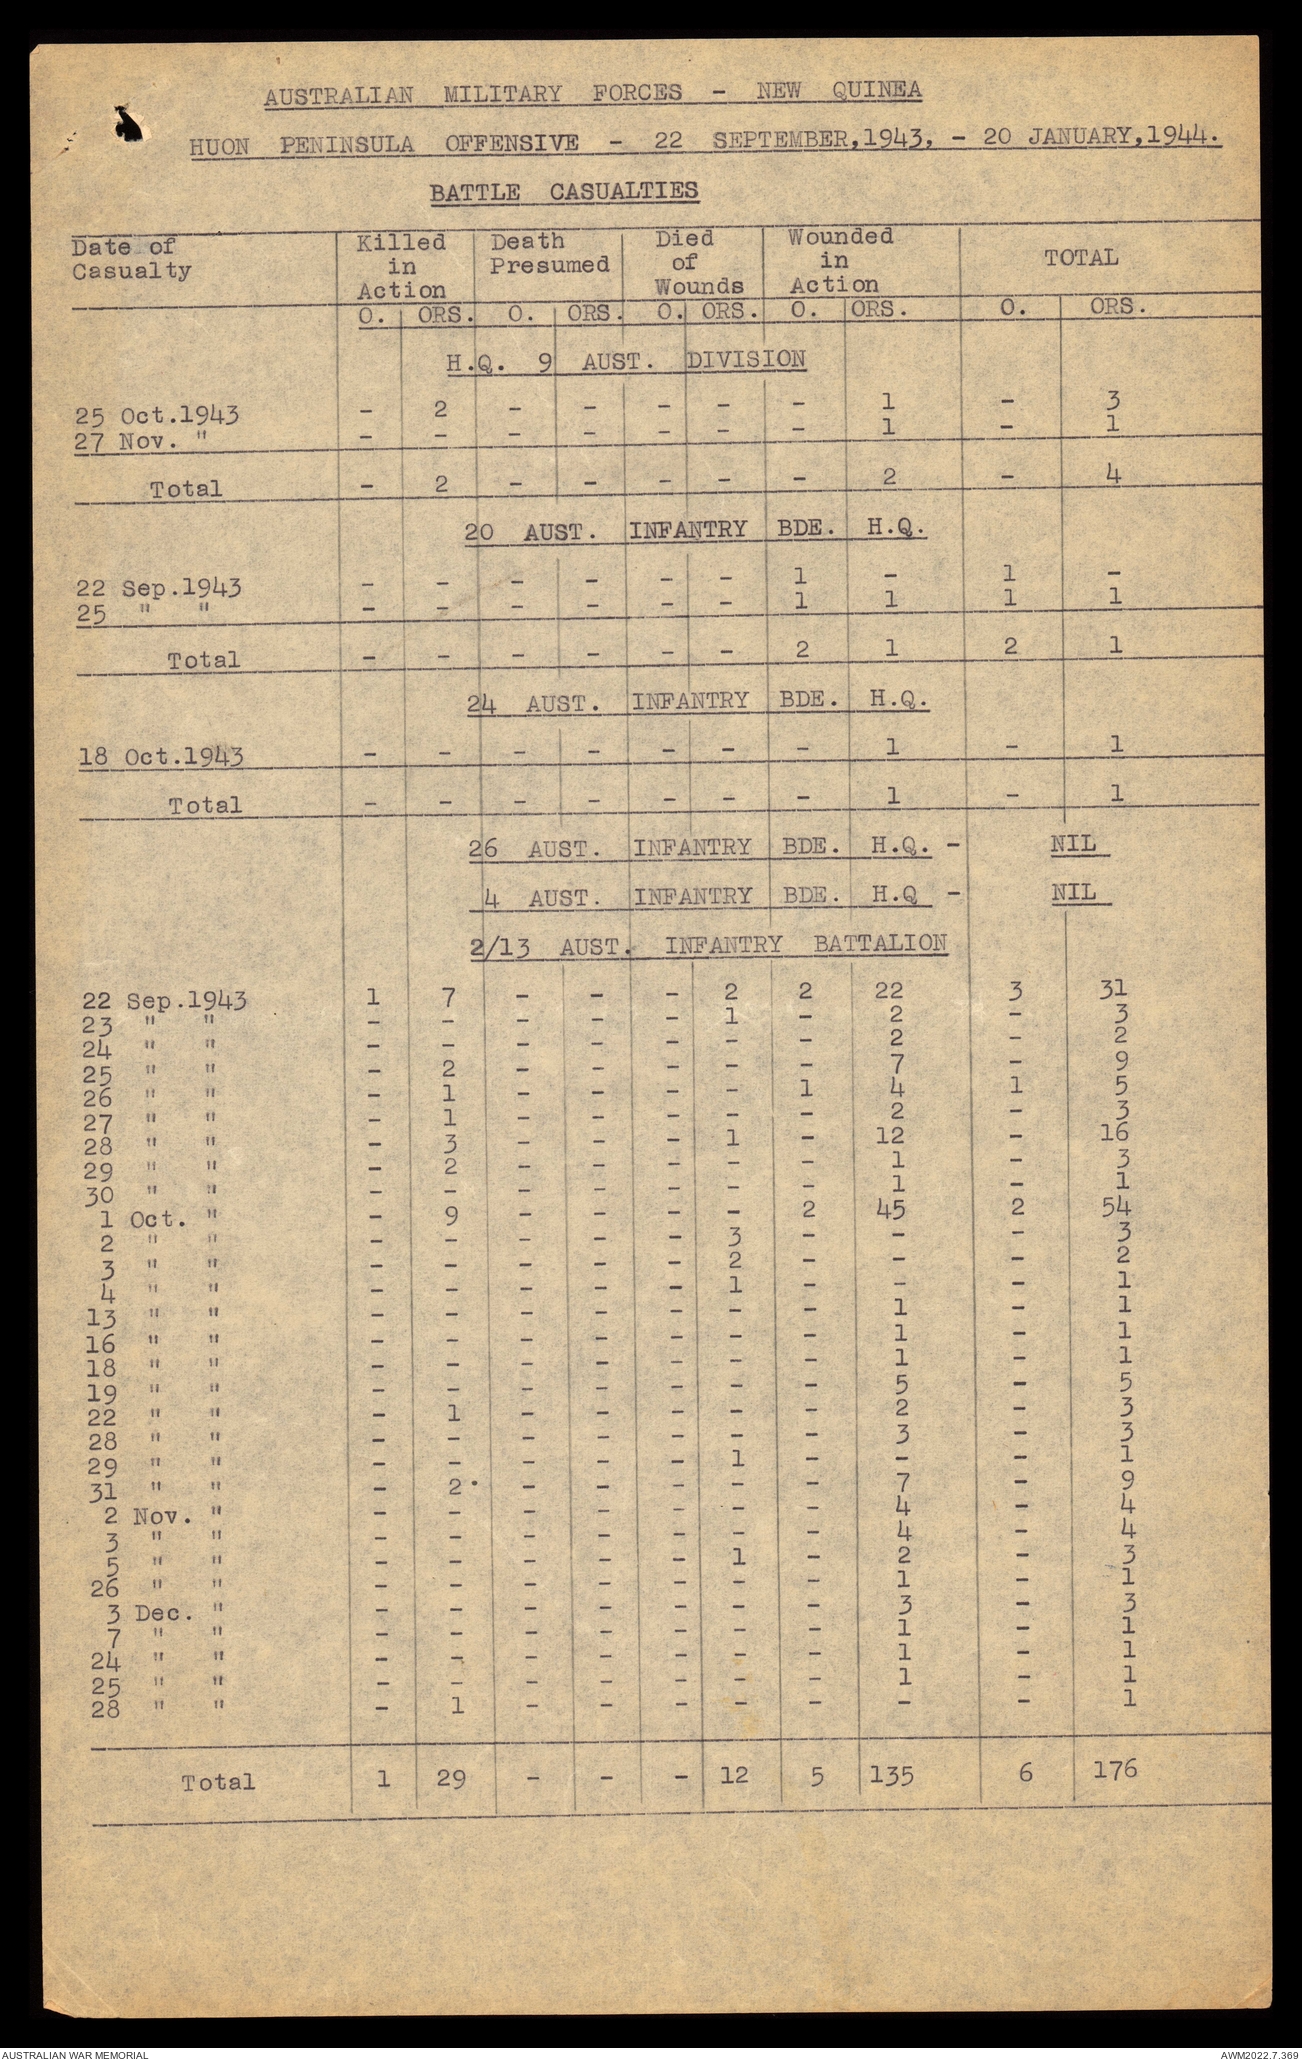 AUSTRALIAN MILITARY FORCES - NEW QUINEA
HUON PENINSULA OFFENSIVE - 22 SEPTEMBER,1943, - 20 JANUARY,1944.
BATTLE CASUALTIES
Date of Casualty | Killed in Action | Death Presumed | Died of Wounds | Wounded in Action | TOTAL
O. ORS. O. ORS. O. ORS. O. ORS. O. ORS.
H.Q. 9 AUST. DIVISION
25 Oct.1943 - 2 - - - - - 1 - 3
27 Nov. " - - - - - - - 1 - 1
Total - 2 - - - - - 2 - 4
20 AUST. INFANTRY BDE. H.Q.
22 Sep.1943 - - - - - - 1 - 1 -
25 " " - - - - - - 1 1 1 1
Total - - - - - - 2 1 2 1
24 AUST. INFANTRY BDE. H.Q.
18 Oct.1943 - - - - - - - 1 - 1
Total - - - - - - - 1 - 1
26 AUST. INFANTRY BDE. H.Q. - NIL
4 AUST. INFANTRY BDE. H.Q - NIL
2/13 AUST. INFANTRY BATTALION
22 Sep.1943 1 7 - - - 2 2 22 3 31
23 " " - - - - - 1 - 2 - 3
24 " " - - - - - - - 2 - 2
25 " " - 2 - - - - - 7 - 9
26 " " - 1 - - - - 1 4 1 5
27 " " - 1 - - - - - 2 - 3
28 " " - 3 - - - 1 - 12 - 16
29 " " - 2 - - - - - 1 - 3
30 " " - - - - - - - 1 - 1
1 Oct. " - 9 - - - - 2 45 2 54
2 " " - - - - - 3 - - - 3
3 " " - - - - - 2 - - - 2
4 " " - - - - - 1 - - - 1
13 " " - - - - - - - 1 - 1
16 " " - - - - - - - 1 - 1
18 " " - - - - - - - 1 - 1
19 " " - - - - - - - 5 - 5
22 " " - 1 - - - - - 2 - 3
28 " " - - - - - - - 3 - 3
29 " " - - - - - 1 - - - 1
31 " " - 2 - - - - - 7 - 9
2 Nov. " - - - - - - - 4 - 4
3 " " - - - - - - - 4 - 4
5 " " - - - - - 1 - 2 - 3
26 " " - - - - - - - 1 - 1
3 Dec. " - - - - - - - 3 - 3
7 " " - - - - - - - 1 - 1
24 " " - - - - - - - 1 - 1
25 " " - - - - - - - 1 - 1
28 " " - 1 - - - - - - - 1
Total 1 29 - - - 12 5 135 6 176
AUSTRALIAN WAR MEMORIAL AWM2022.7.369